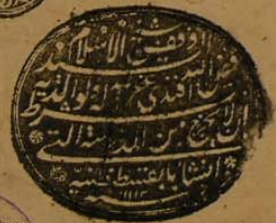 وقف شيخ الاسلام السيد
فيض الله افندي غفر الله له ولوالديه
بشرط ان لا يخرج من المدرسة التي
انشأها بقسطنطينية
١١١٢